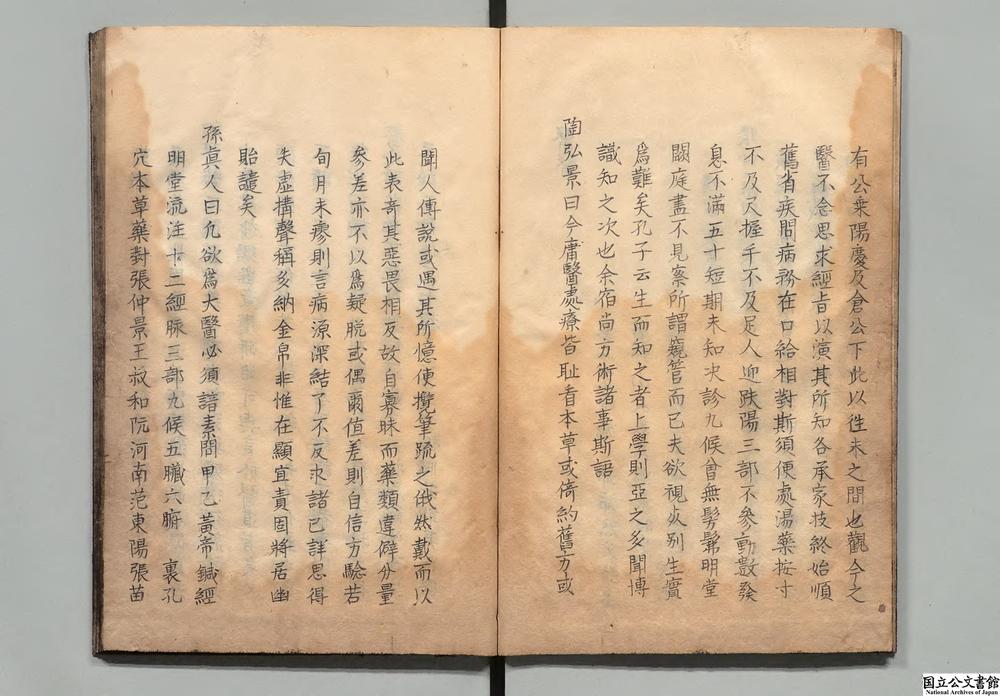 有公乗陽慶及倉公下此以徃未之間也觀今之
醫不念思求經旨以演其所知各承家技終始順
舊省疾問病務在口給相對斯須便處湯藥按寸
不及尺握手不及足人迎趺陽三部不參動數發
息不滿五十短期未知决診九候曾無髣髴明堂
闕庭盡不見察所謂窺管而已夫欲視死别生實
爲難矣孔子云生而知之者上學則亞之多聞博
識知之次也余宿尚方術諸事斯語
陶弘景曰今庸醫處療皆耻看本草或倚約舊方或
聞人傳說或遇其所憶便攬筆䟽之俄然戴而以
此表竒其惡畏相反故自寡昧而藥類違僻分量
參差亦不以爲疑脱或偶爾值差則自信方驗若
旬月未瘳則言病源深結了不反求諸已詳思得
失虚搆聲稱多納金帛非惟在顯宜責固將居幽
貽譴矣
孫真人曰凢欲爲大醫必須諳素問甲乙黄帝鍼經
明堂流注十二經脉三部九候五臓六腑 裏孔
穴本草藥對張仲景王叔和阮河南范東陽張苗
国立公文書館
National Archives of Japan